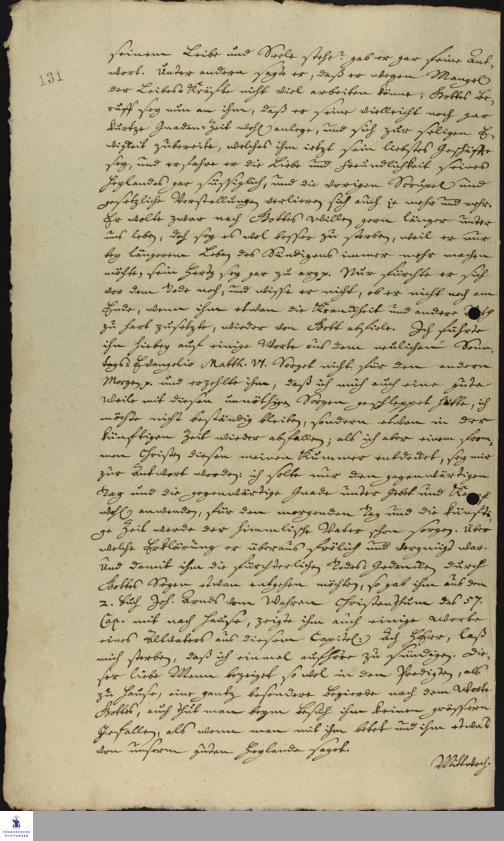 131
seinem Leibe und Seele stehe? gab er gar feine Ant-
wort. Unter andern sagte er, daß er wegen Mangel
der Leibes-Kräfte nicht viel arbeiten könne; Gottes Be-
ruff sey nun an ihm, daß er seine vielleicht noch gar
kurtze Gnaden-Zeit wohl anlege, und sich zur seligen E-
wigkeit zubereite, welches ihm ietzt sein liebstes Geschäffte
sey, und erfahre er die Liebe und Freundlichkeit seines
Heylandes gar süssiglich, und die vorigen Scrupel und
gesetzliche Vorstellungen verlieren sich auch je mehr und mehr.
Er wolte zwar nach Gottes Willen gern länger unter
uns leben, doch sey es wol besser zu sterben, weil er nur
bey längerem Leben des Sündigens immer mehr machen
möchte, sein Hertz sey gar zu arg. Nur fürchte er sich
vor dem Tode noch, und wisse er nicht, ob er nicht noch am
Ende, wenn ihm etwan die Kranckheit und andere
zu hart zusetzte, wieder von Gott abfiele. Ich führte
ihn hiebey auf einige Worte aus dem neulichen Sonn-
tags-Evangelio Matth. VI. Sorget nicht für den andern
Morgen p. und erzehlte ihm, daß ich mich auch eine gute
Weile mit diesen unnöthigen Sorgen geschleppet hätte, ich
möchte nicht beständig bleiben, sondern etwan in der
künftigen Zeit wieder abfallen; als ich aber einem from-
men Christen diesen meinen Kummer entdecket, sey mir
zur Antwort worden: ich solte nur den gegenwärtigen
Tag und die gegenwärtige Gnade unter Gebet und
wohl anwenden, für den morgenden Tag und die künfti-
ge Zeit werde der himmlische Vater schon sorgen. Über
welche Erklärung er überaus frölich und vergnügt war.
Und damit ihm die fürchterlichen Todes-Gedancken durch
Gottes Segen etwan vergehen möchten, so gab ihm aus dem
2. Buch Joh. Arnds vom Wahren Christenthum das 57.
Cap. mit nach Hause, zeigte ihm auch einige Worte
eines Altvaters aus diesem Capitel: Ach HErr, laß
mich sterben, daß ich einmal aufhöre zu sündigen. Die-
ser liebe Mann bezeiget so wol in den Predigten, als
zu Hause, eine gantz besondere Begierde nach dem Worte
Gottes, auch thut man beym Besuch ihm keinen grössern
Gefallen, als wenn man mit ihm betet und ihm etwas
von unserm guten Heylande saget.
Mittwoch.
FRANCKESCHE
STIFTUNGEN